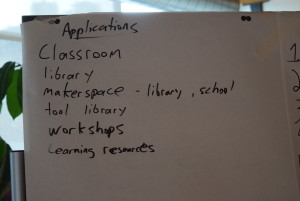 Applications
Classroom
library
makerspace - library, school
tool library
workshops
Learning resources
1
2